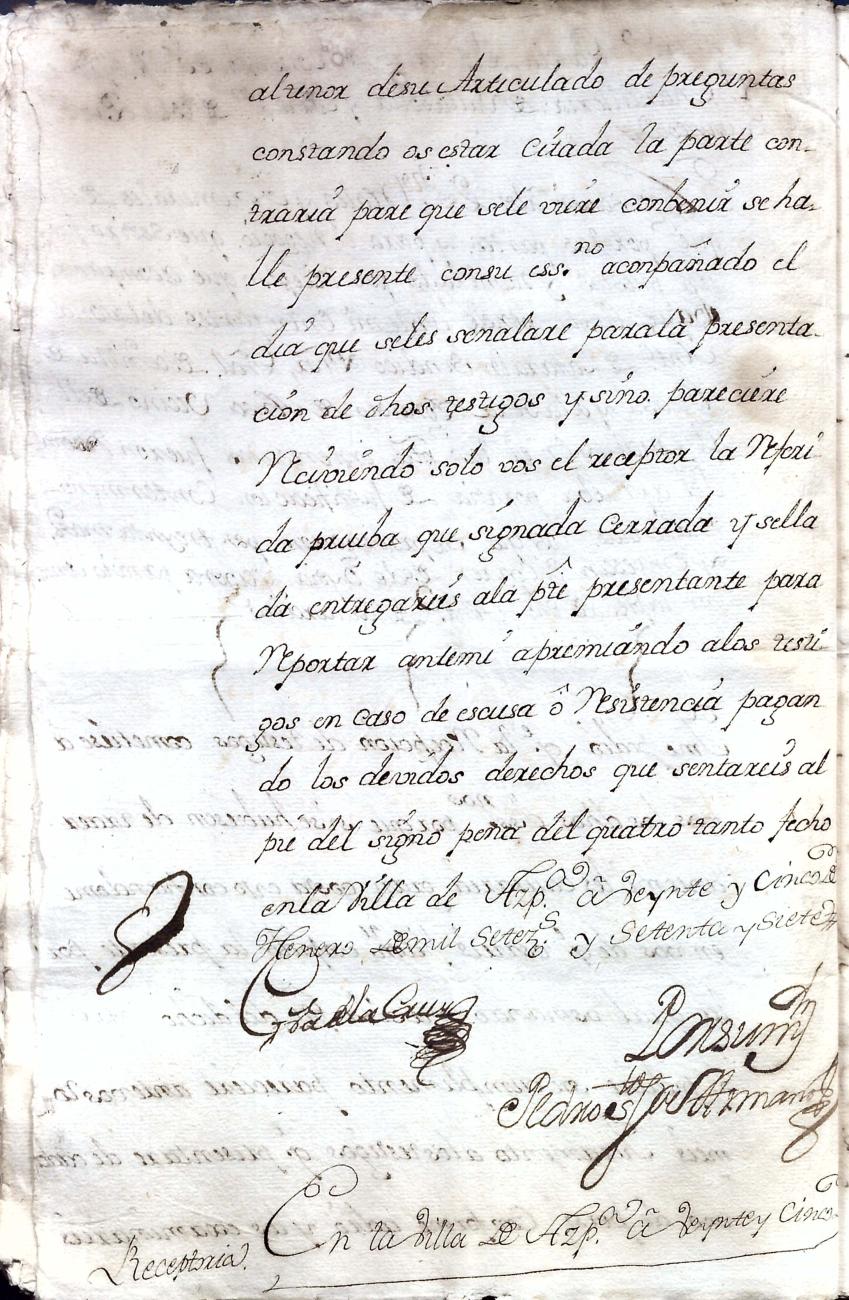 altenor desu Articulado de preguntas
constando os estar Citada la parte con-
traria pare que sele viere conbenir se ha-
lle presente consu ess.no aconpañado el
dia que seles señalare para la presenta-
cion de dhos testigos y sino pareciere
Reciviendo solo vos el receptor la Referi
da prueba que signada Cerrada y sella
da entregareis ala pte presentante para
Reportar antemi apremiando alos testi
gos en caso de escusa ô Resistencia pagan
do los devidos derechos que sentareis al
pie del signo pena del quatro tanto fecho
enla Villa de Azp.a â Veynte y Cinco de
Henero de mil Setez.s y Setenta y Siete
de la Cruz
Por su m.
Pedro
En la Villa de Azp.a â Veynte y Cinco
Receptoria.